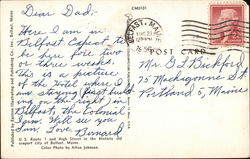 CN0101
Dear Dad,
Here I am in
Belfast. Expect to
be here two
or three weeks.
This is a picture
of the Hotel where I
am staying (first build
ing on the right) in
Belfast, the Colonial
Inn. Will see you
soon. Love Bernard
U.S. Route 1 and High Street in the historic old
seaport city of Belfast, Maine.
Color Photo by
Published by Eastern Illustrating and Publishing Co., Inc., Belfast, Maine
BELFAST, MAINE
AUG 23
POST CARD
Mr. G. L. Bickford
75 Mackagonne St
Portland 5, Maine